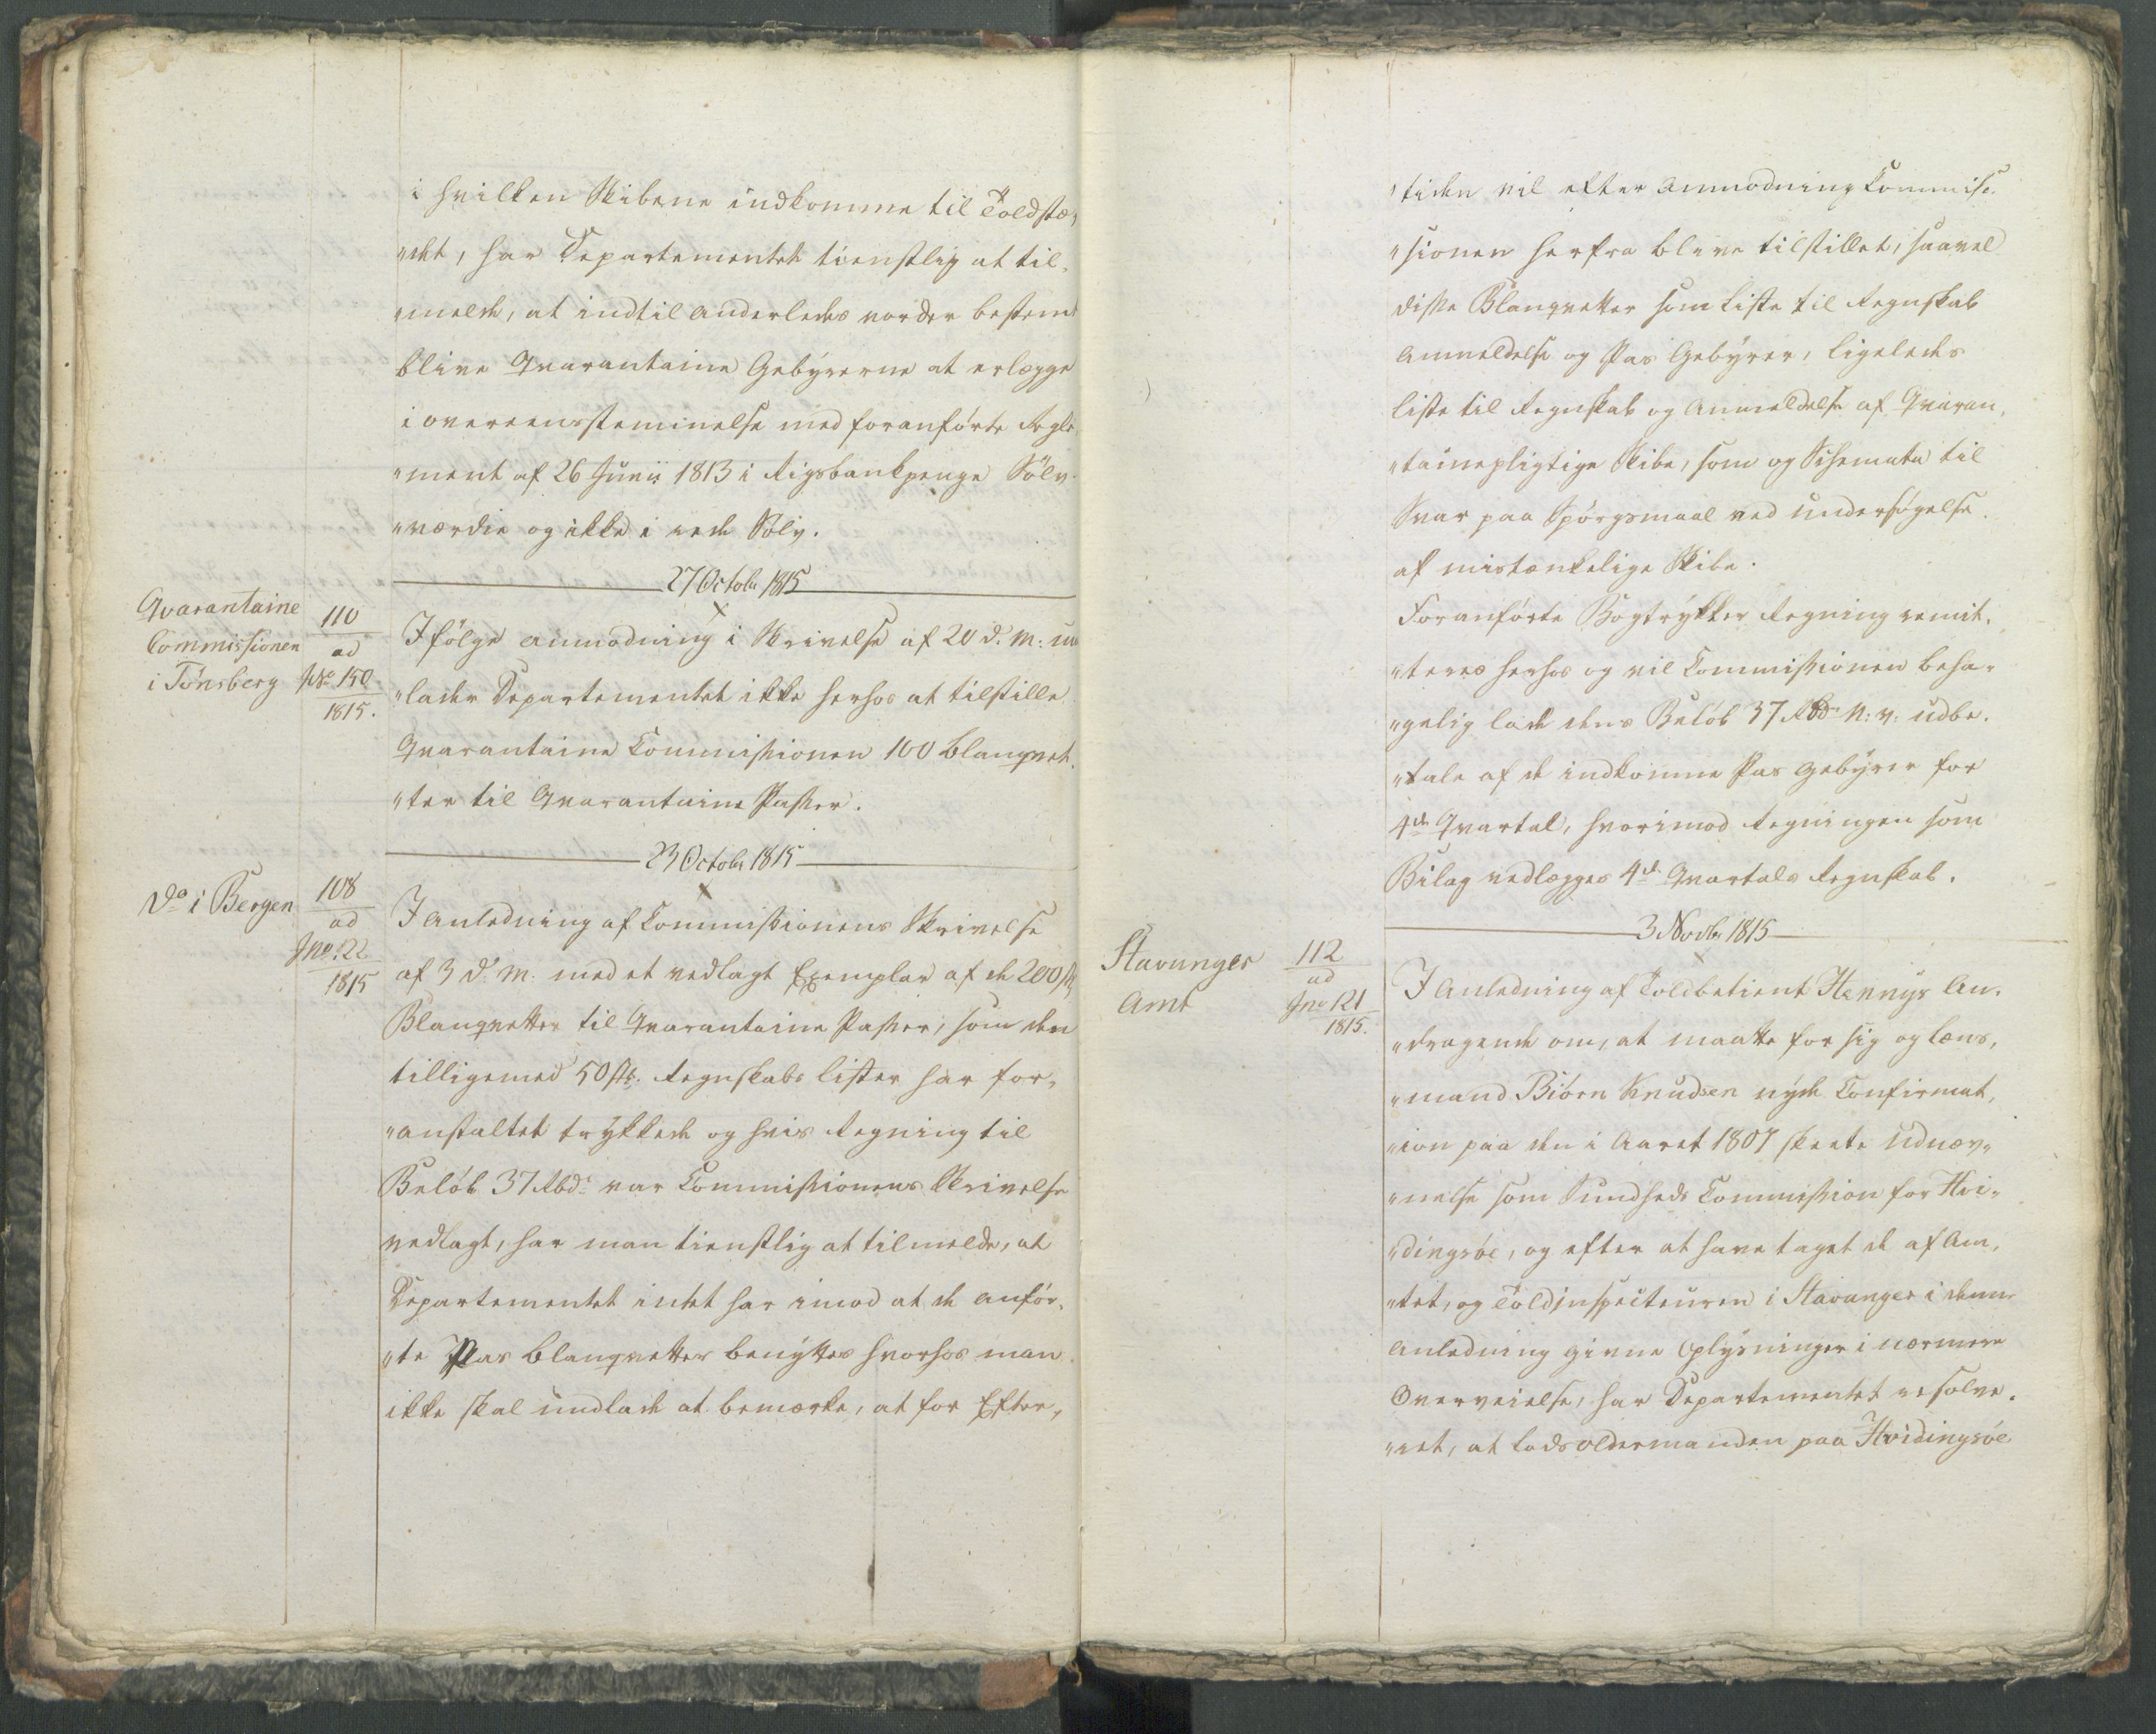 i hvilken Skibene indkomme til Toldstæ„
„det, har Departementet tienstlig at til„
„melde, at indtil anderledes vorder bestemt
blive Qvarantaine Gebyrerne at erlægge
i overeensstemmelse med foranförte Regle„
„ment af 26 Junii 1813 i Rigsbankpenge Sölv„
„værdie og ikke i rede Sölv.
27 Octobr 1815
Qvarantaine
Commissionen
i Tönsberg
110
ad
No 150
1815.
Ifölge anmodning i Skrivelse af 20 d. M: un
„lader Departementet ikke herhos at tilstille
Qvarantaine Commissionen 100 Blanqvet„
„ter til Qvarantaine Passer.
23 Octobr 1815
Do i Bergen
108
ad
Jno 122
1815
I Anledning af Commissionens Skrivelse
af 3 d. M. med et vedlagt Exemplar af de 200 st
Blanqvetter til Qvarantaine Passer, som den
tilligemed 50 stk. Regnskabs lister har for„
„anstaltet trykkede og hvis Regning til
Belöb 37 Rbd. var Commissionens Skrivelse
vedlagt, har man tienstlig at tilmelde, at
Departementet intet har imod at de anför„
„te Pas blanqvetter benyttes hvorhos man
ikke skal undlade at bemærke, at for Efter„
„tiden vil efter anmodning Commis„
„sionen herfra blive tilstillet, saavel
disse Blanqvetter som Liste til Regnskab
Anmeldelse og Pas Gebyrer, ligeledes
Liste til Regnskab og Anmeldelse af Qvaran„
„tainepligtige Skibe, som og Schemata til
Svar paa Spörgsmaal ved undersögelse
af mistænkelige Skibe.
Foranförte Bogtrykker Regning remit„
„teres herhos og vil Commissionen beha„
„gelig lade dens Belöb 37 Rbd. N: v: udbe„
„tale af de indkomne Pas Gebyrer for
4de Qvartal, hvorimod Regningen som
Bilag vedlægges 4de Qvartals Regnskab.
3 Novbr 1815
Stavanger
Amt
112
ad
Jno 121
1815.
I Anledning af Toldbetient Hennys An„
„dragende om, at maatte for sig og Lens„
„mand Biörn Knudsen nyde Confirmat„
„ion paa den i Aaret 1807 skeete Udnæv„
„nelse som Sundheds Commission for Hvi„
„dingsöe, og efter at have taget de af Am„
„tet, og Toldinspecteuren i Stavanger i denne
Anledning givne Oplysninger i nærmere
Overveielse, har Departementet resolve„
„ret, at Lodsoldermanden paa Hvidingsöe